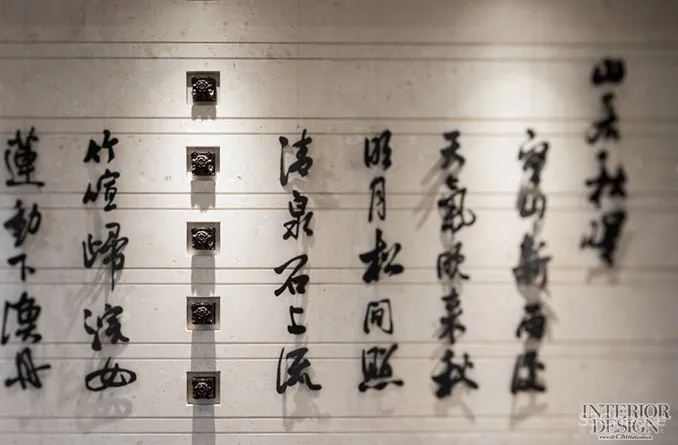 山居秋暝
空山新雨後
天氣晚來秋
明月松間照
清泉石上流
竹喧歸浣女
蓮動下漁舟
INTERIOR
DESIGN